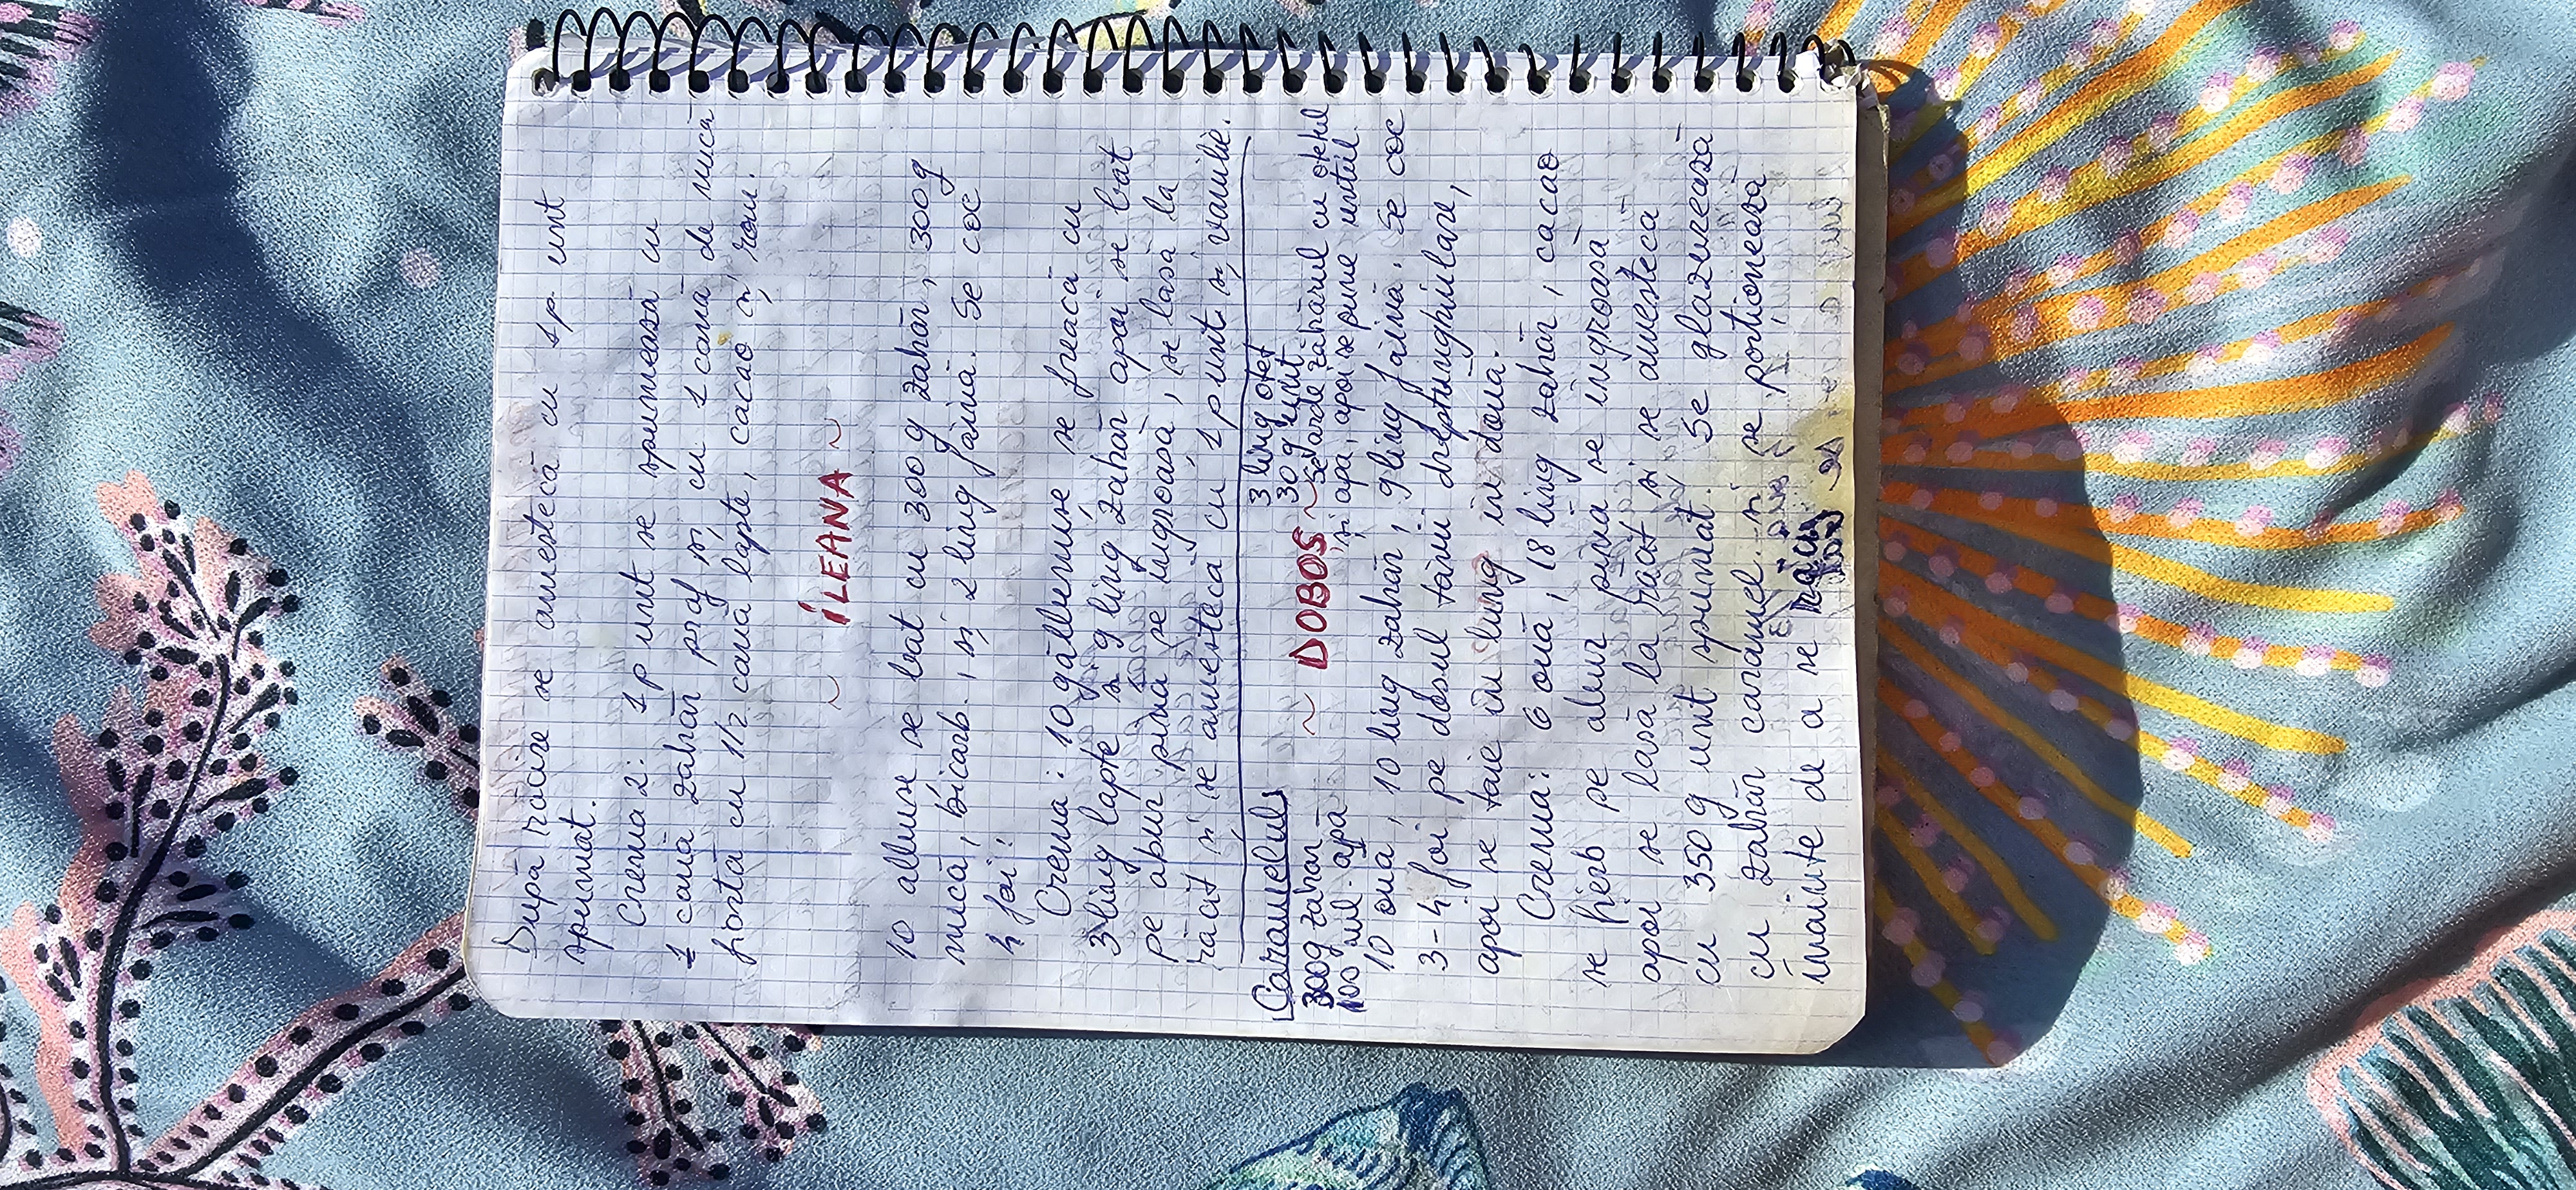 După răcire se amestecă cu 1p. unt
spumat.
Crema 2: 1p unt se spumează cu
1 cană zahăr praf și cu 1 cană de nucă
fiartă cu 1/2 cană lapte, cacao și rom.
~ ILEANA ~
10 albușe se bat cu 300g zahăr, 300g
nucă, bicarb., și 2 ling făină. Se coc
4 foi!
Crema: 10 gălbenușe se freacă cu
3 ling lapte și 9 ling zahăr apoi se bat
pe abur pînă se îngroașă, se lasă la
răcit și se amestecă cu 1p unt și vanilie.
Caramelul
300g zahăr
100 ml. apă
3 ling oțet
30 g unt
~ DOBOS ~
Se arde zăhărul cu oțetul
și apa, apoi se pune untul.
10 ouă, 10 ling zahăr, 9 ling făină. Se coc
3-4 foi pe dosul tăvii dreptunghiulare,
apoi se taie în lung în două.
Crema: 6 ouă, 18 ling zahăr, cacao
se fierb pe abur pînă se îngroașă
apoi se lasă la răcit și se amestecă
cu 350 g unt spumat. Se glazurează
cu zahăr caramel. și se porționează
înainte de a se răci